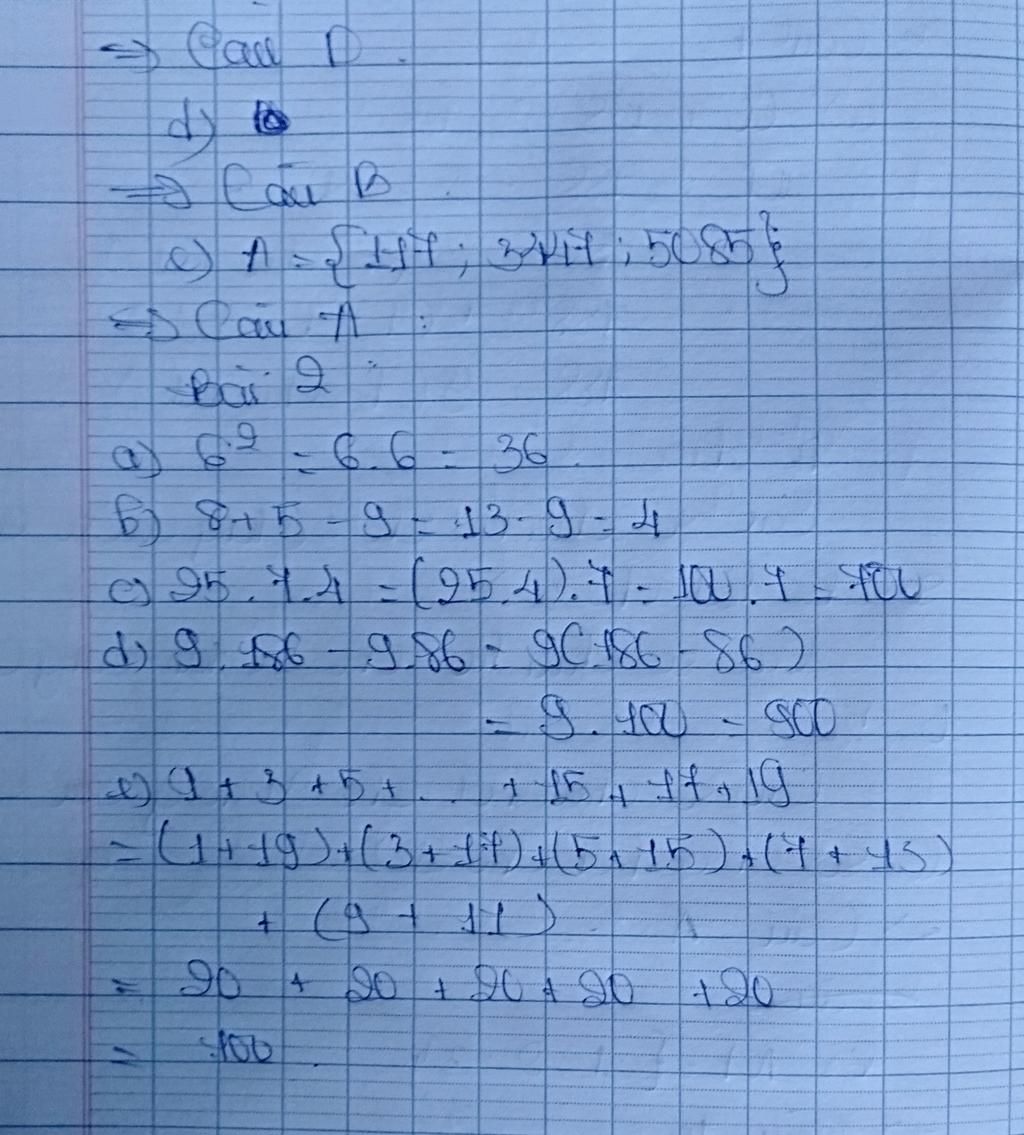 => Câu D.
d)
=> Câu B
e) A = {117; 3447; 5085}
=> Câu A
Bài 2:
a) 6² = 6.6 = 36
b) 8 + 5 - 9 = 13 - 9 = 4
c) 25.7.4 = (25.4).7 = 100.7 = 700
d) 9.186 - 9.86 = 9(186 - 86)
= 9.100 = 900
e) 1 + 3 + 5 + ... + 15 + 17 + 19
= (1 + 19) + (3 + 17) + (5 + 15) + (7 + 13)
+ (9 + 11)
= 20 + 20 + 20 + 20 + 20
= 100